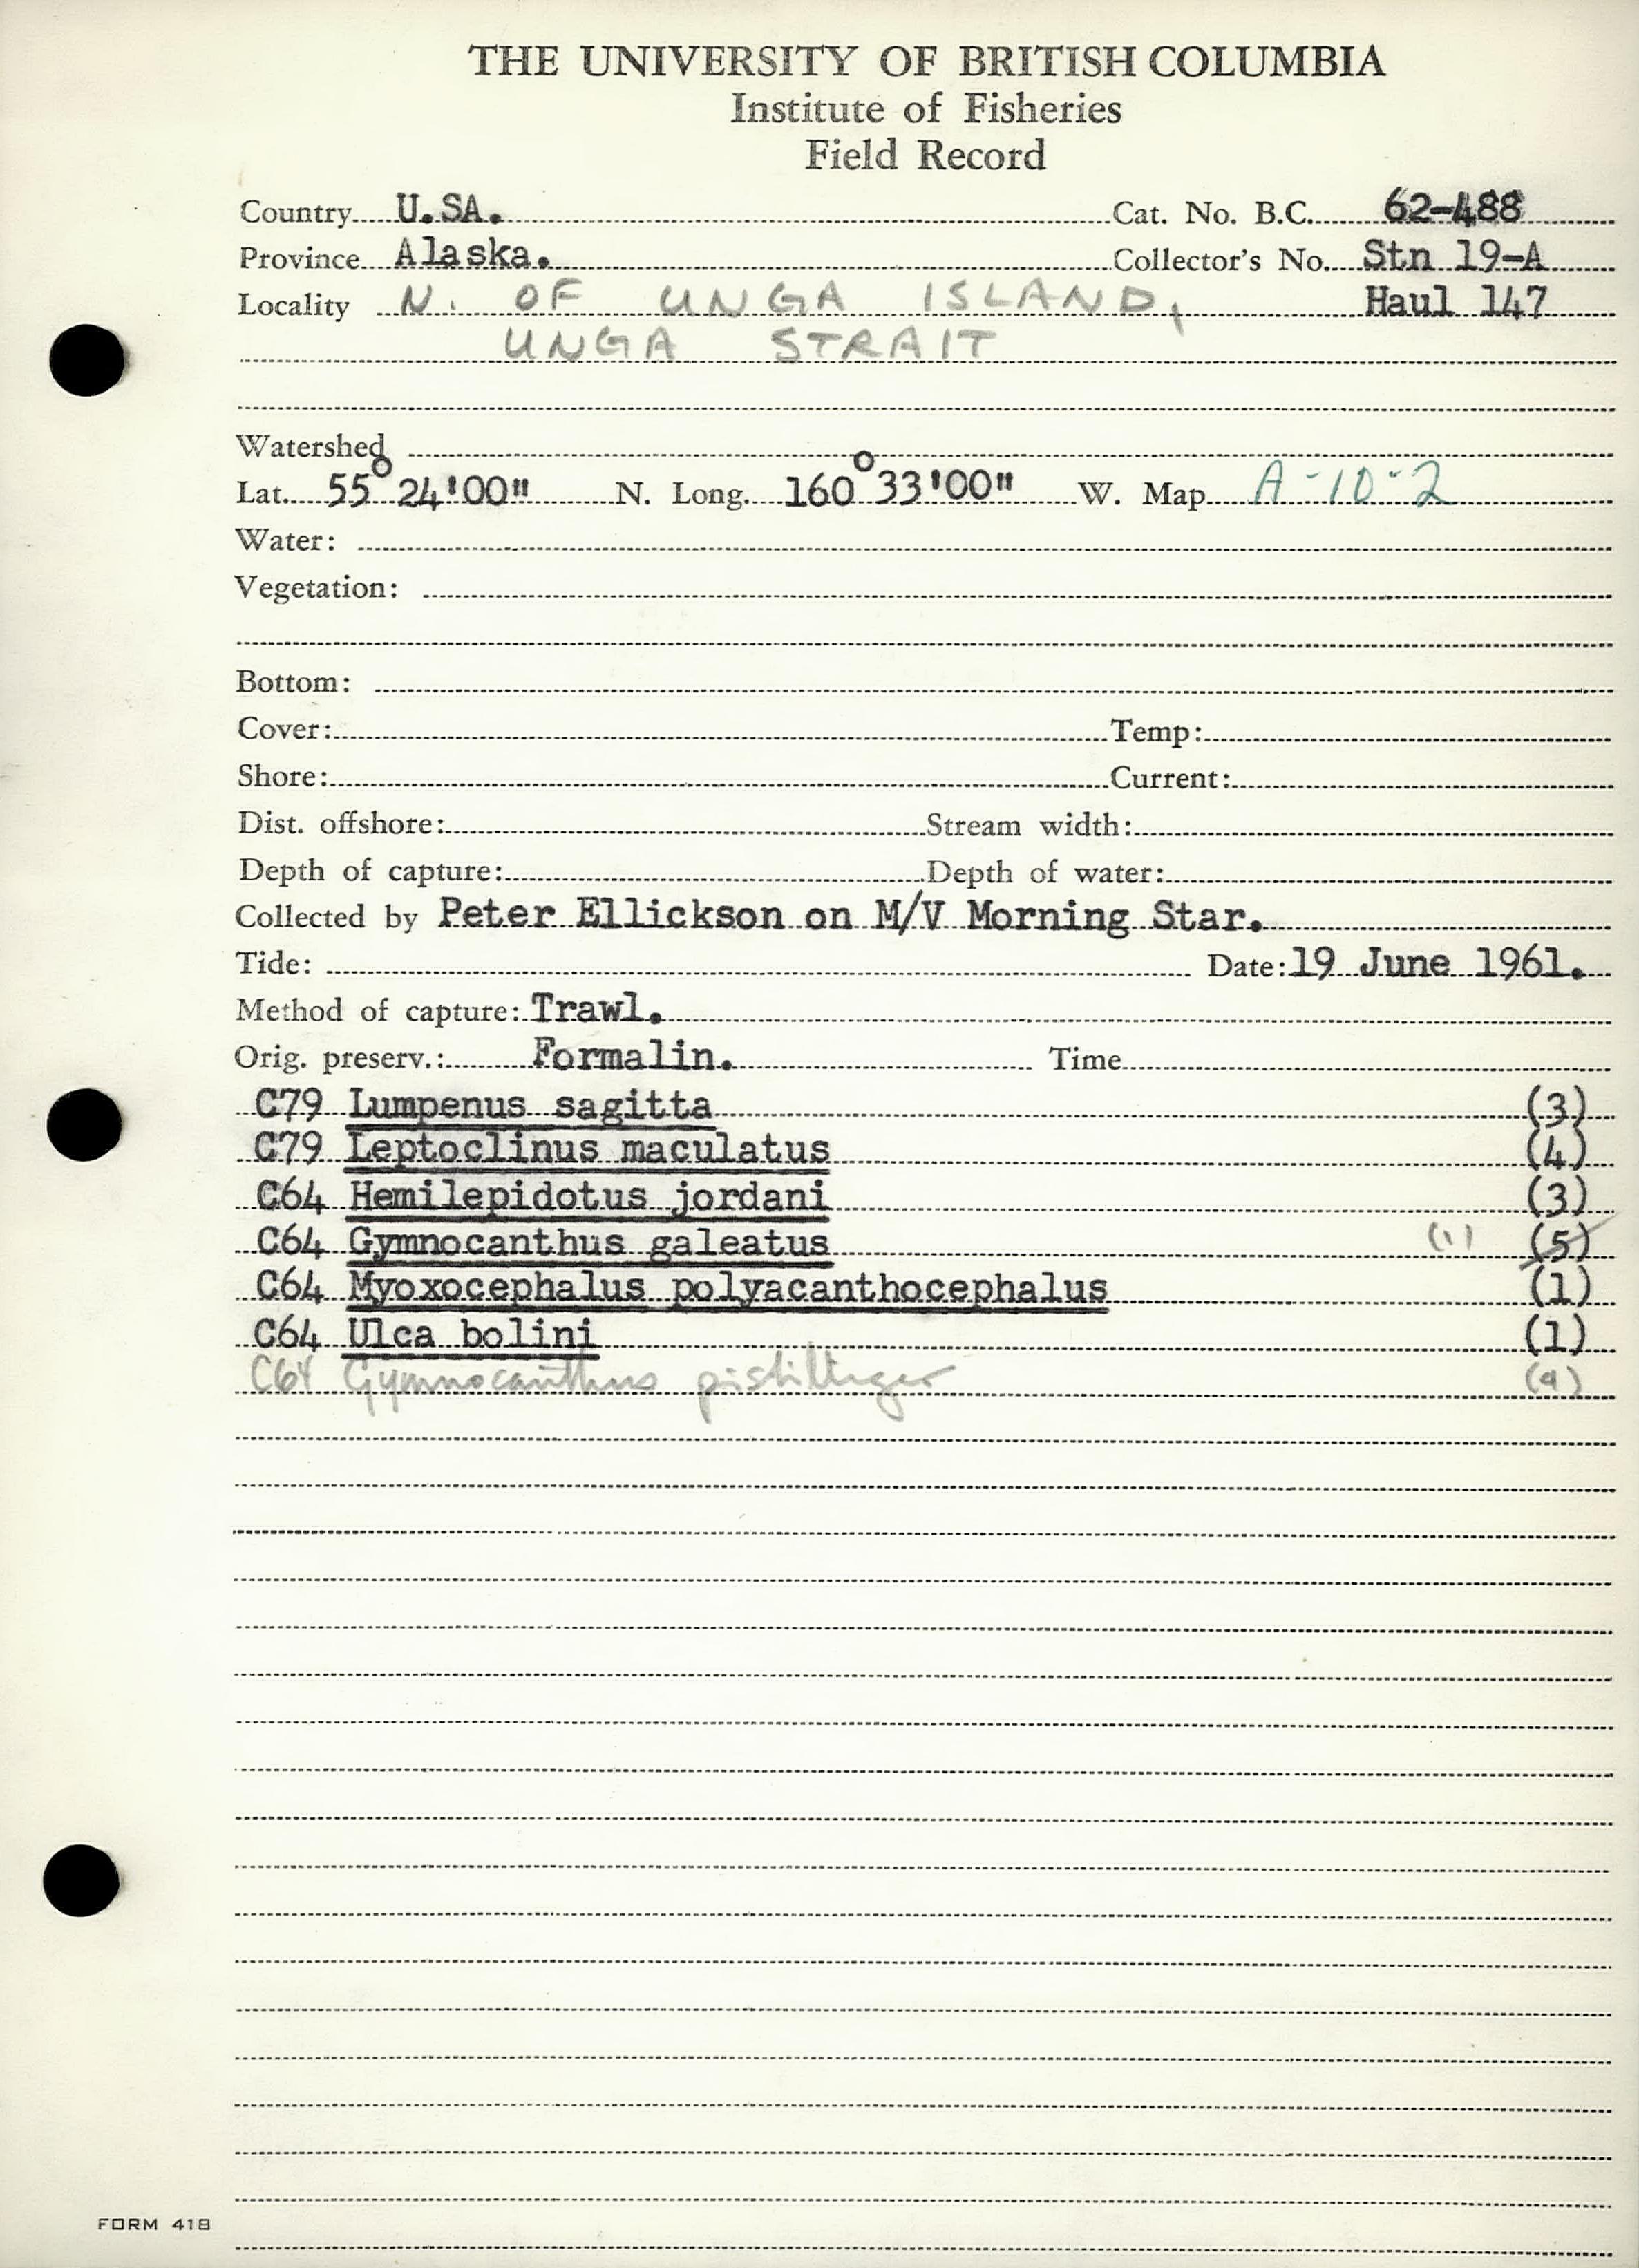 THE UNIVERSITY OF BRITISH COLUMBIA
Institute of Fisheries
Field Record
Country U.SA. Cat. No. B.C. 62-488
Province Alaska. Collector's No. Stn 19-A
Locality N. OF UNGA ISLAND, Haul 147
UNGA STRAIT
Watershed
Lat. 55° 24'00" N. Long. 160° 33'00" W. Map A-10-2
Water:
Vegetation:
Bottom:
Cover: Temp:
Shore: Current:
Dist. offshore: Stream width:
Depth of capture: Depth of water:
Collected by Peter Ellickson on M/V Morning Star.
Tide: Date: 19 June 1961.
Method of capture: Trawl.
Orig. preserv.: Formalin. Time
C79 Lumpenus sagitta (3)
C79 Leptoclinus maculatus (4)
C64 Hemilepidotus jordani (3)
C64 Gymnocanthus galeatus (1) (5)
C64 Myoxocephalus polyacanthocephalus (1)
C64 Ulca bolini (1)
C64 Gymnocanthus pistilliger
FORM 418